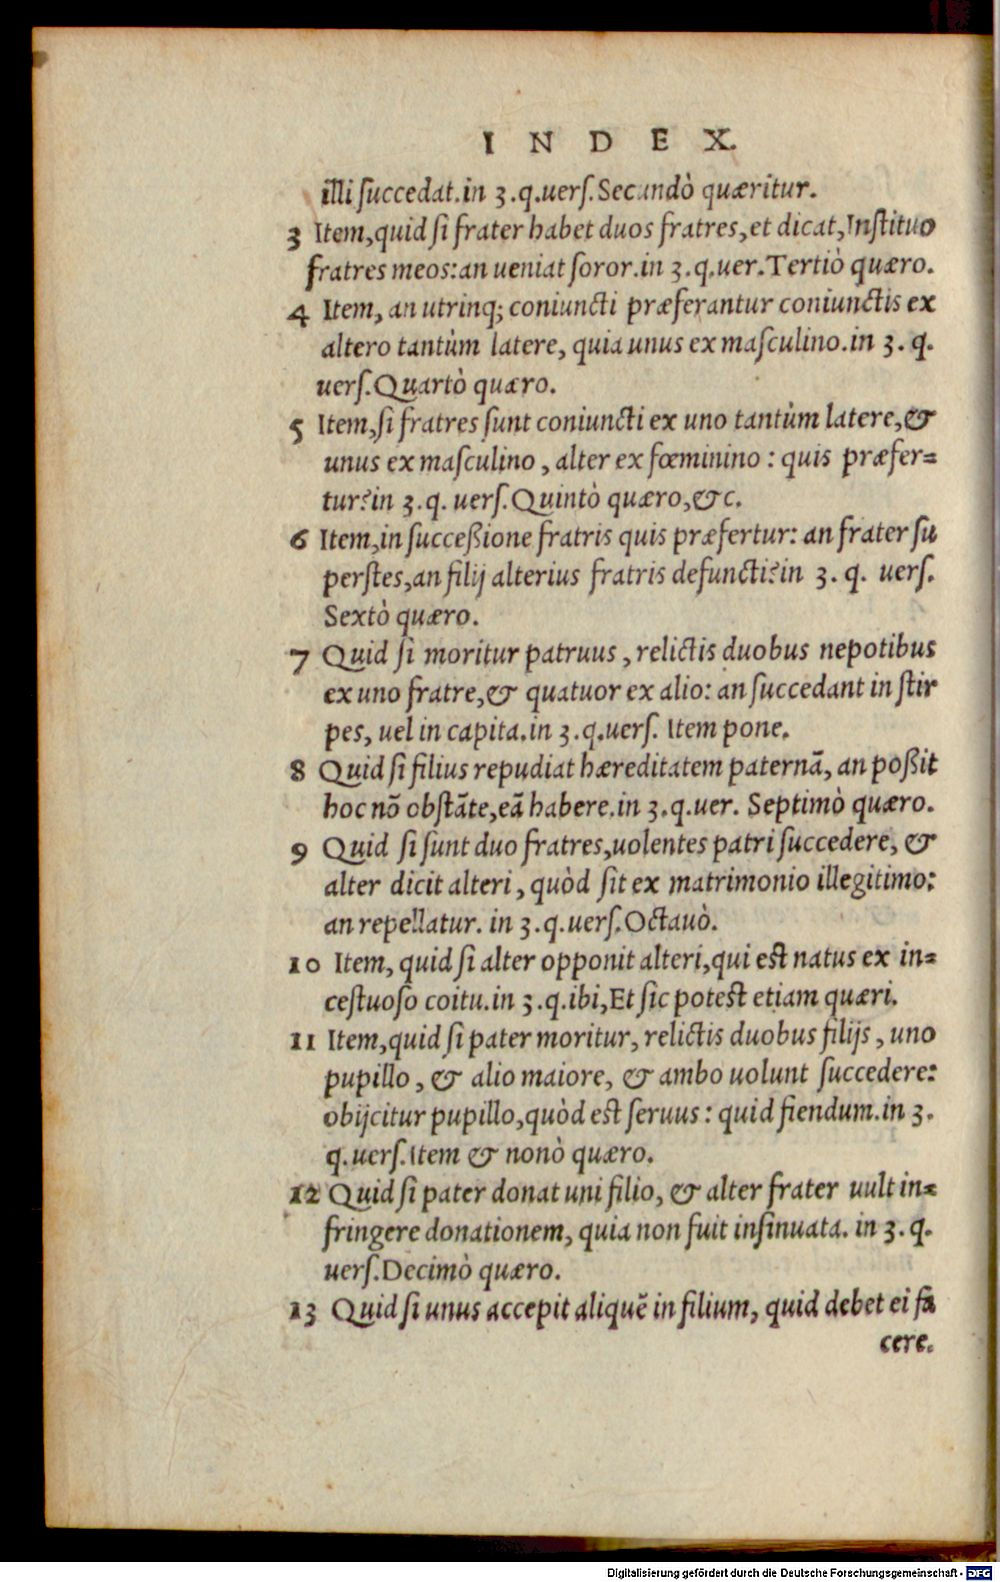 I N D E X.
illi succedat.in 3.q.uers.Secundò quæritur.
3 Item,quid si frater habet duos fratres,et dicat,Instituo
fratres meos:an ueniat soror.in 3.q.uer.Tertiò quæro.
4 Item, an utrinq; coniuncti præferantur coniunctis ex
altero tantùm latere, quia unus ex masculino.in 3. q.
uers.Quartò quæro.
5 Item,si fratres sunt coniuncti ex uno tantùm latere,&
unus ex masculino, alter ex fœminino: quis præfer=
tur?in 3.q. uers.Quintò quæro,&c.
6 Item,in successione fratris quis præfertur: an frater su
perstes,an filij alterius fratris defuncti?in 3. q. uers.
Sextò quæro.
7 Quid si moritur patruus, relictis duobus nepotibus
ex uno fratre,& quatuor ex alio: an succedant in stir
pes, uel in capita.in 3.q.uers. Item pone.
8 Quid si filius repudiat hæreditatem paternã, an possit
hoc nõ obstãte,eã habere.in 3.q.uer. Septimò quæro.
9 Quid si sunt duo fratres,uolentes patri succedere, &
alter dicit alteri, quòd sit ex matrimonio illegitimo:
an repellatur. in 3.q.uers.Octauò.
10 Item, quid si alter opponit alteri,qui est natus ex in=
cestuoso coitu.in 3.q.ibi,Et sic potest etiam quæri.
11 Item,quid si pater moritur, relictis duobus filijs, uno
pupillo, & alio maiore, & ambo uolunt succedere:
obijcitur pupillo,quòd est seruus: quid fiendum.in 3.
q.uers.Item & nonò quæro.
12 Quid si pater donat uni filio, & alter frater uult in=
fringere donationem, quia non fuit insinuata. in 3.q.
uers.Decimò quæro.
13 Quid si unus accepit aliquẽ in filium, quid debet ei fa
cere.
Digitalisierung gefördert durch die Deutsche Forschungsgemeinschaft - DFG